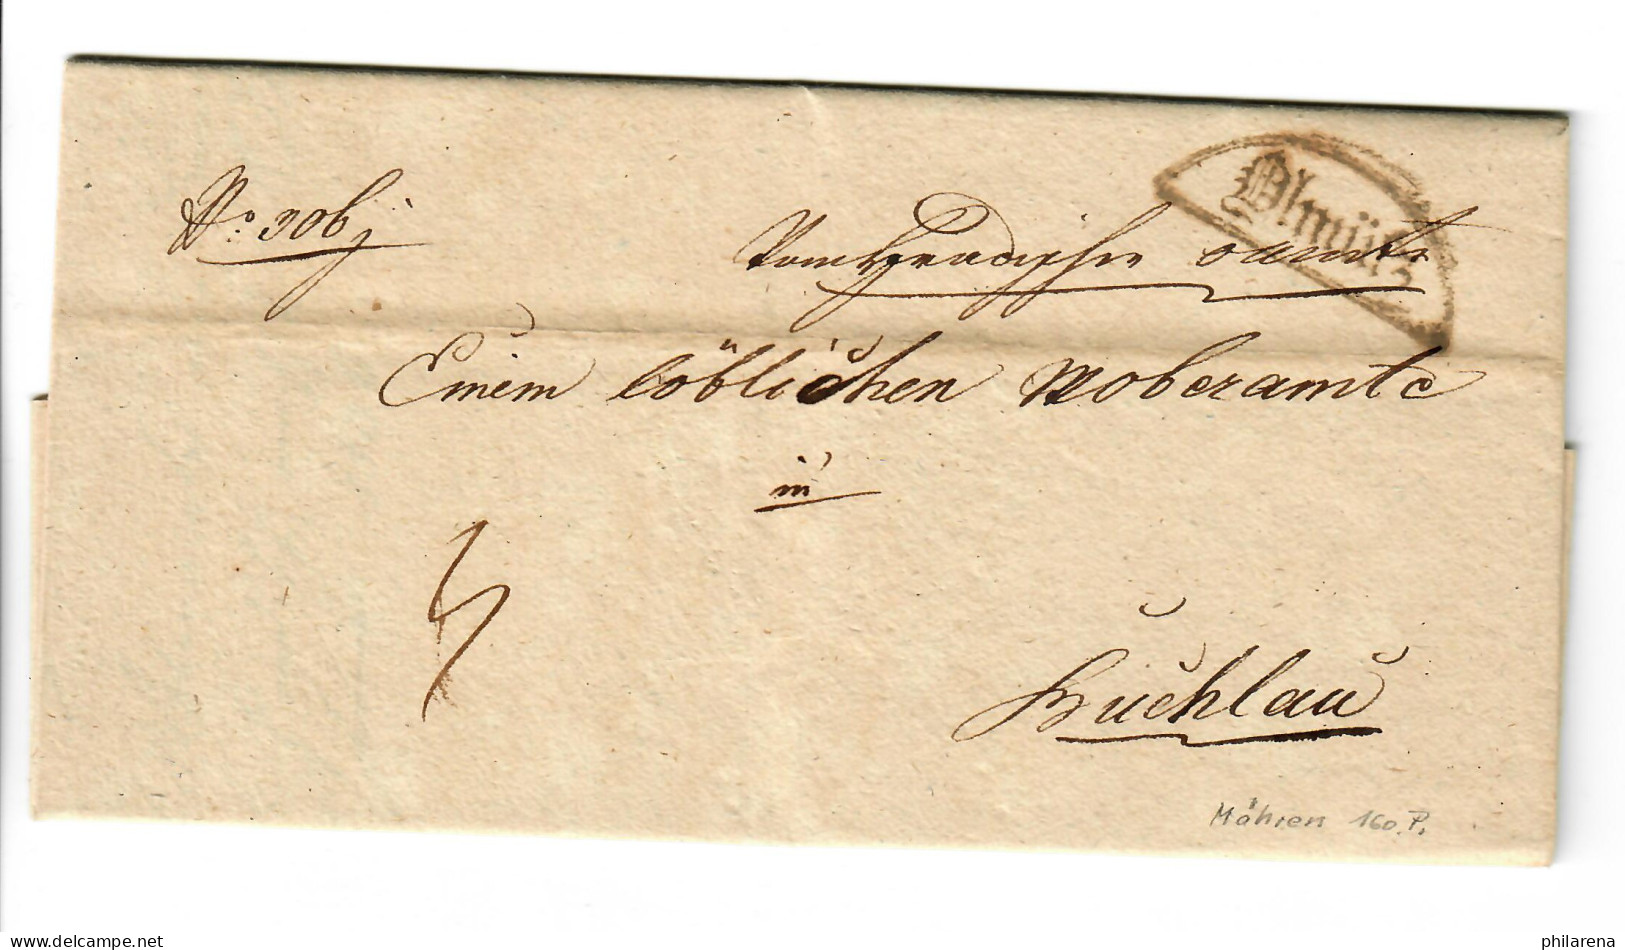 Olmütz
No: 306
Einem löblichen Woberamte
in
Buchlau
Mähren 160.P.
www.delcampe.net
philarena